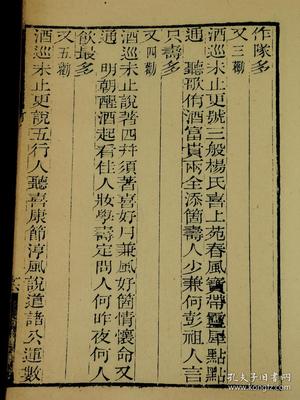 作隊多
又三勸
酒巡未止更號三般楊氏喜上苑春風寶帶靈犀點點
通　聽歌侑酒富貴兩全添箇壽人少兼何彭祖人言
只壽多
又四勸
酒巡未止說著四并須著喜好月兼風好箇情懷命又
通　明朝醒酒起看佳人妝學壽定問人何昨夜何人
飲最多
又五勸
酒巡未止更說五行人聽喜康節淳風說道諸公運數
孔夫子旧书网